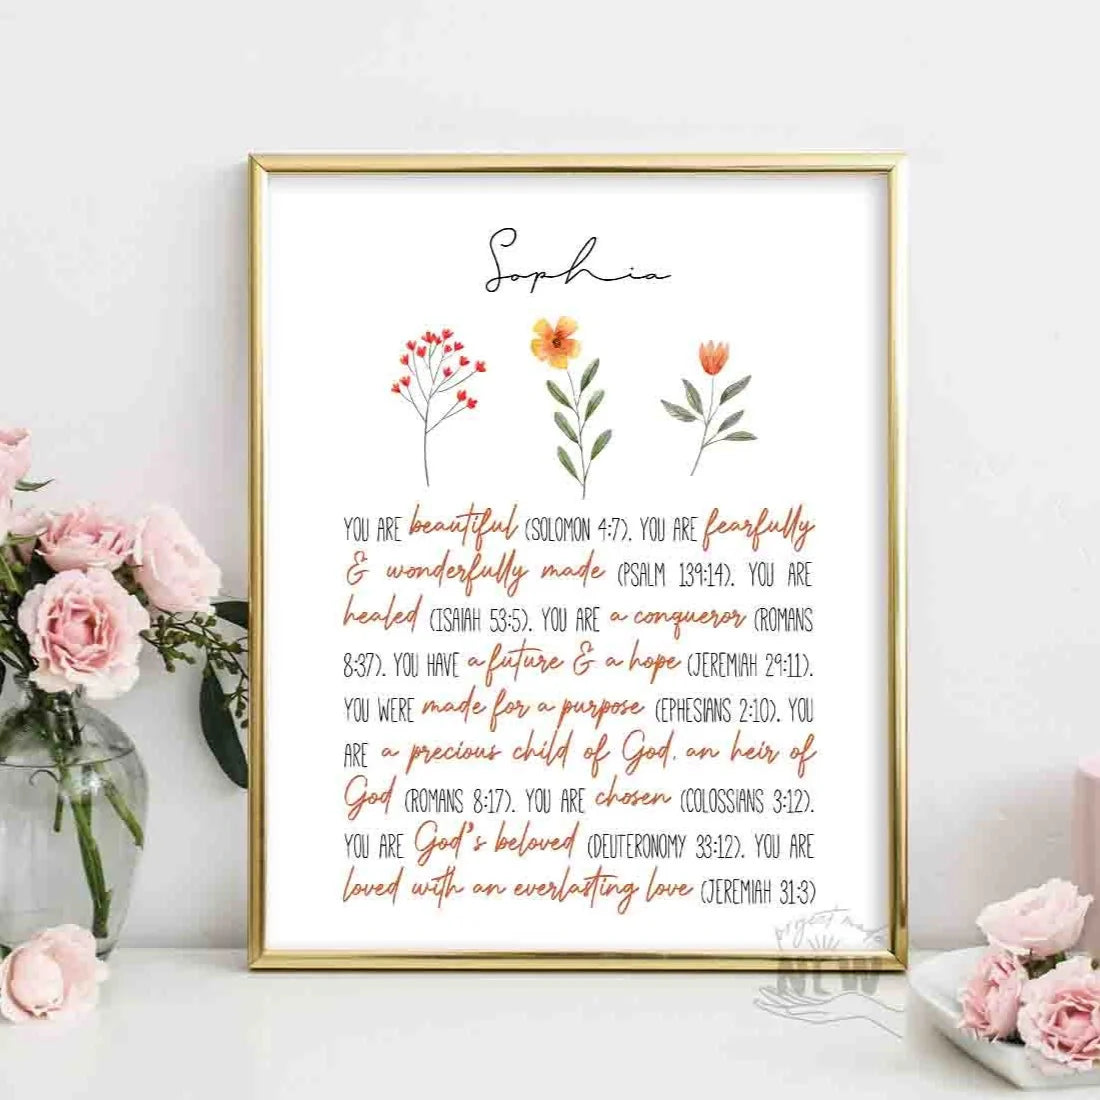 Sophia
YOU ARE beautiful (SOLOMON 4:7). YOU ARE fearfully
& wonderfully made (PSALM 139:14). YOU ARE
healed (ISAIAH 53:5). YOU ARE a conqueror (ROMANS
8:37). YOU HAVE a future & a hope (JEREMIAH 29:11).
YOU WERE made for a purpose (EPHESIANS 2:10). YOU
ARE a precious child of God, an heir of
God (ROMANS 8:17). YOU ARE chosen (COLOSSIANS 3:12).
YOU ARE God's beloved (DEUTERONOMY 33:12). YOU ARE
loved with an everlasting love (JEREMIAH 31:3)
project made
NEW